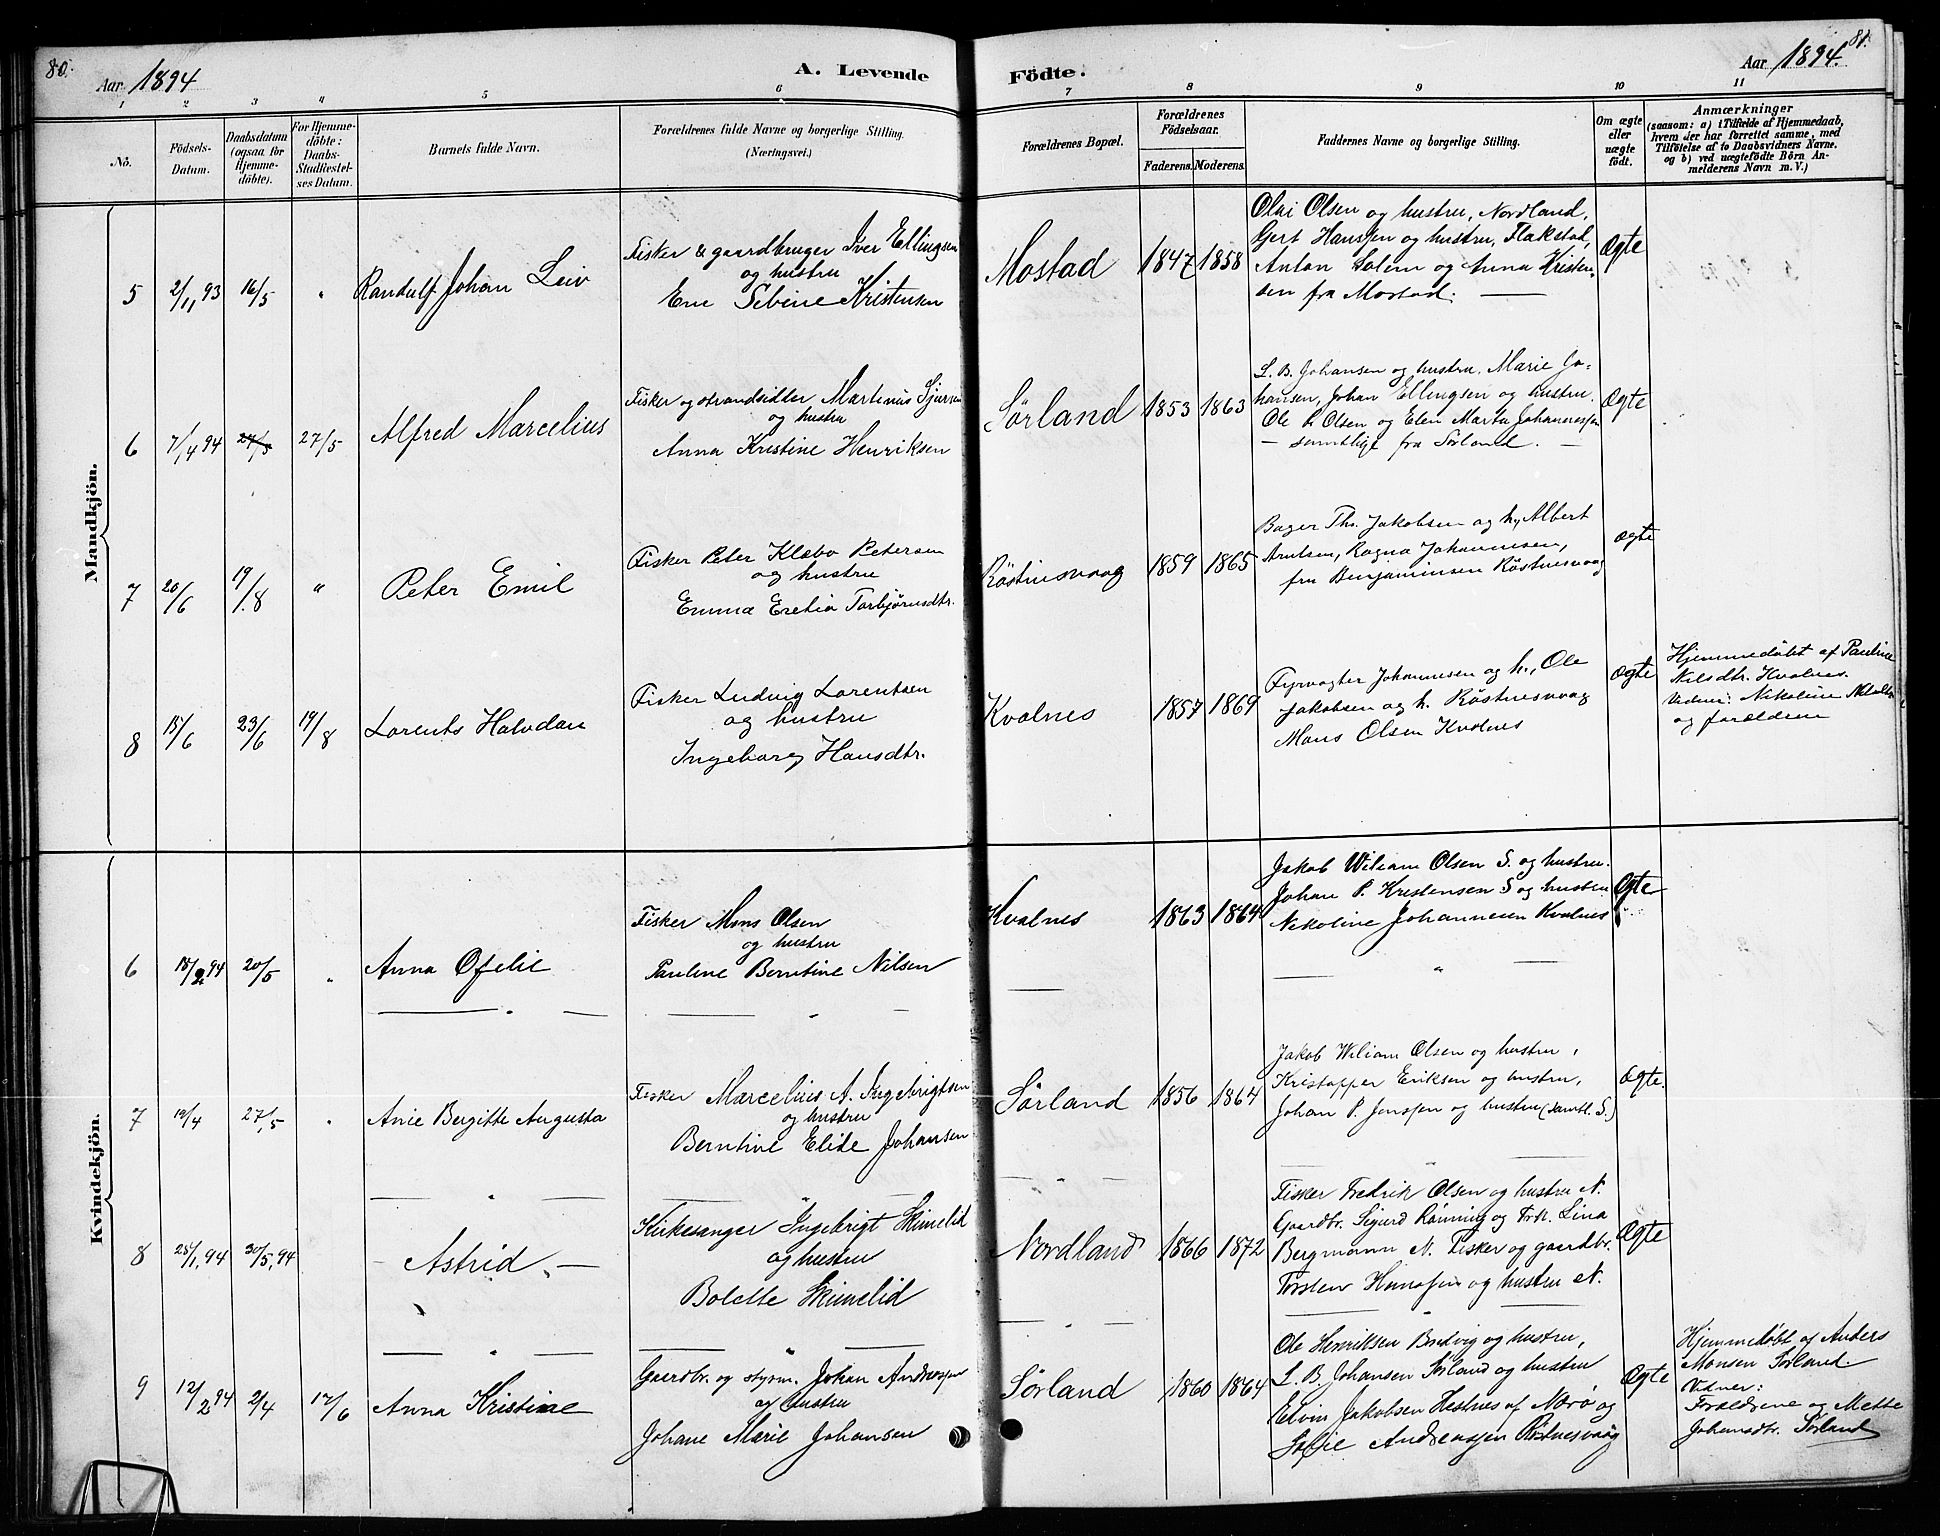 80.
Aar 1894
A. Levende
Födte.
Aar 1894.
81.
1 2 3 4 5 6 7 8 9 10 11
No.
Födsels-Datum.
Daabsdatum (ogsaa for Hjemme-döbte).
For Hjemme-döbte: Daabs-Stadfæstel-ses Datum.
Barnets fulde Navn.
Forældrenes fulde Navne og borgerlige Stilling.
(Næringsvei.)
Forældrenes Bopæl.
Forældrenes Födselsaar.
Faderens. Moderens.
Faddernes Navne og borgerlige Stilling.
Om ægte eller uægte födt.
Anmærkninger
(saasom: a) i Tilfælde af Hjemmedaab,
hvem der har forrettet samme, med
Tilföielse af to Daabsvidners Navne.
og b) ved uægtefödte Börn An-
melderens Navn m. V.)
Mandkjön.
5 2/11 93 16/5 " Randulf Johan Leiv
Fisker & gaardbruger Iver Ellingsen
og hustru
Ene Sebine Kristensen
Mostad 1847 1858
Olai Olsen og hustru, Nordland,
Gert Hanssen og hustru, Flakstad,
Anton Solem og Anna Kristen-
sen fra Mostad.
Ægte
6 7/4 94 27/5 27/5 Alfred Marcelius
Fisker og strandsidder Martinus Sjursen
og hustru
Anna Kristine Henriksen
Sörland 1853 1863
L. B. Johansen og hustru. Marie Jo-
hansen, Johan Ellingsen og hustru.
Ole L. Olsen og Elen Marta Johannessen
– samtlige fra Sörland. –
Ægte
7 20/6 19/8 " Peter Emil
Fisker Peter Klæbo Petersen
og hustru
Emma Eretia Torbjörnsdtr.
Röstnesvaag 1859 1865
Bager Th. Jakobsen og h., Albert
Arntsen, Ragna Johannesen,
fru Benjaminsen Röstnesvaag
Ægte
8 15/6 23/6 19/8 Lorents Halvdan
Fisker Ludvig Lorentsen
og hustru
Ingeborg Hansdtr.
Kvalnes 1857 1869
Fyrvogter Johannesen og h., Ole
Jakobsen og h. Röstnesvaag
Mons Olsen Kvalnes
Ægte
Hjemmedöbt af Pauline
Nilsdtr. Kvalnes.
Vidne: Nikoline
og forældrene
Kvindekjön.
6 18/2 94 20/5 " Anna Ofelie
Fisker Mons Olsen
og hustru
Pauline Berntine Nilsen
Kvalnes 1863 1864
Jakob Wiliam Olsen S. og hustru.
Johan P. Kristensen S og hustru
Nikoline Johannesen Kvalnes
Ægte
7 19/4 27/5 " Anie Bergitte Augusta
Fisker Marcelius A. Ingebrigtsen
og hustru
Berntine Elide Johansen
Sörland 1856 1864
Jakob Wiliam Olsen og hustru,
Kristoffer Eriksen og hustru,
Johan P. Jenssen og hustru (samtl. S.)
Ægte.
8 25/1 94 30/5 94 Astrid
Kirkesanger Ingebrigt Skimelid
og hustru
Bolette Skimelid
Nordland 1866 1872
Fisker Fredrik Olsen og hustru N.
Gaardbr. Sigurd Rönning og Frk. Lina
Bergmann N. Fisker og gaardbr.
Torsten Hanssen og hustru N.
Ægte
9 12/2 94 2/4 17/6 Anna Kristine
Gaardbr. og styrm. Johan Andreassen
og hustru
Johane Marie Johansen
Sörland 1860 1864
Ole Henriksen Bredvig og hustru,
L. B. Johansen Sörland og hustru
Elvin Jakobsen Hestnes af Nærö og
Sofie Andreassen Röstnesvaag
Ægte
Hjemmedöbt af Anders
Monsen Sörland.
Vidner:
Forældrene og Mette
Johansdtr. Sörland